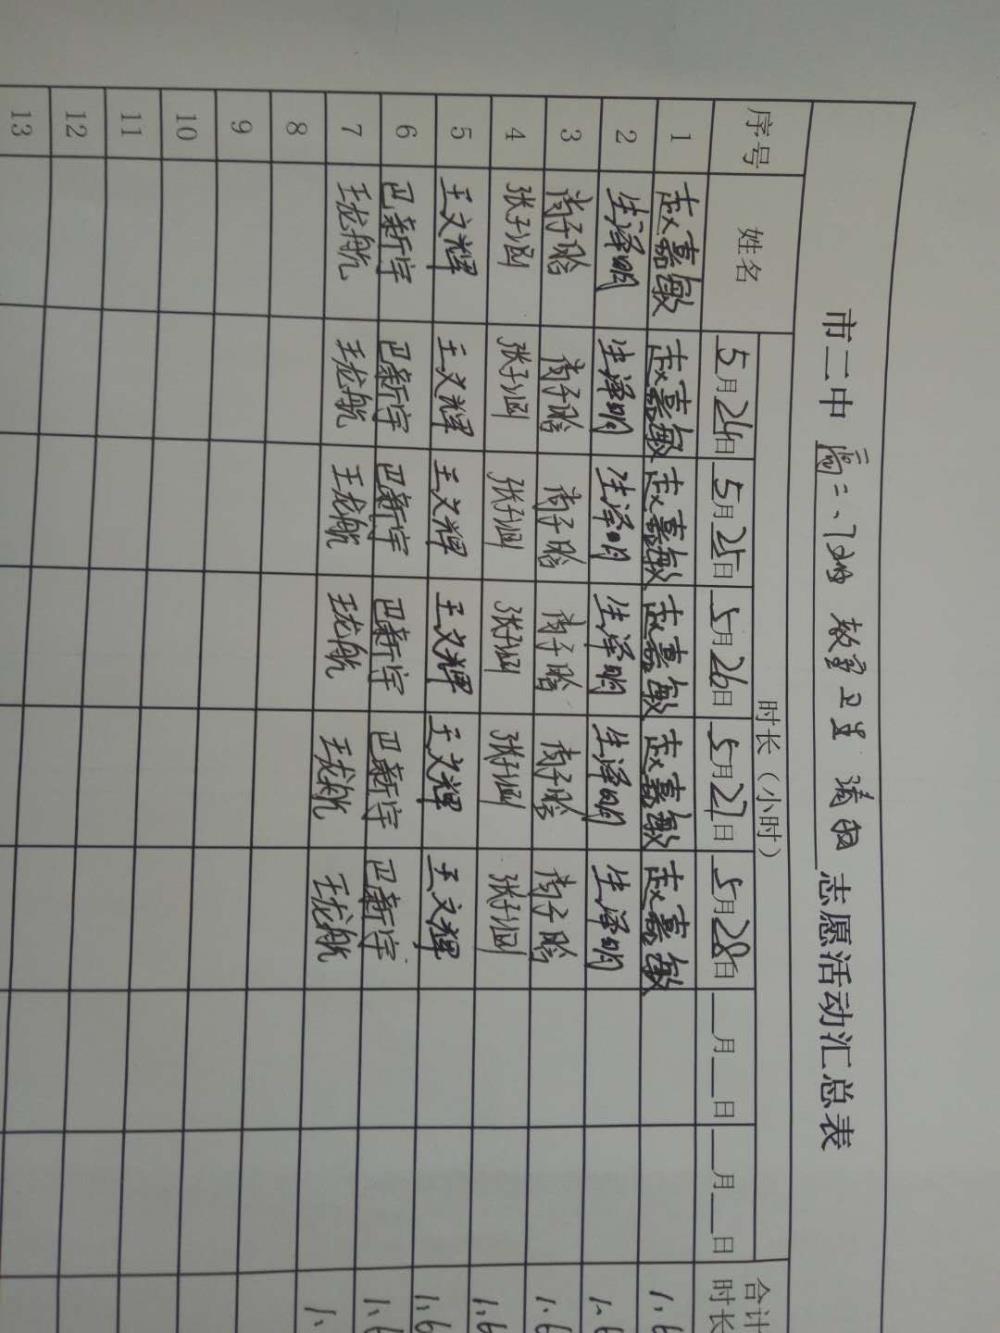 市二中 高二、17班 教室卫生 清扫 志愿活动汇总表
序号 姓名 时长（小时） 合计时长
5月24日 5月25日 5月26日 5月27日 5月28日 __月__日 __月__日
1 赵嘉敏 赵嘉敏 赵嘉敏 赵嘉敏 赵嘉敏 赵嘉敏 1.6
2 生泽明 生泽明 生泽明 生泽明 生泽明 生泽明 1.6
3 尚子晗 尚子晗 尚子晗 尚子晗 尚子晗 尚子晗 1.6
4 张子涵 张子涵 张子涵 张子涵 张子涵 张子涵 1.6
5 王文辉 王文辉 王文辉 王文辉 王文辉 王文辉 1.6
6 巴新宇 巴新宇 巴新宇 巴新宇 巴新宇 巴新宇 1.6
7 王龙航 王龙航 王龙航 王龙航 王龙航 王龙航 1.
8
9
10
11
12
13